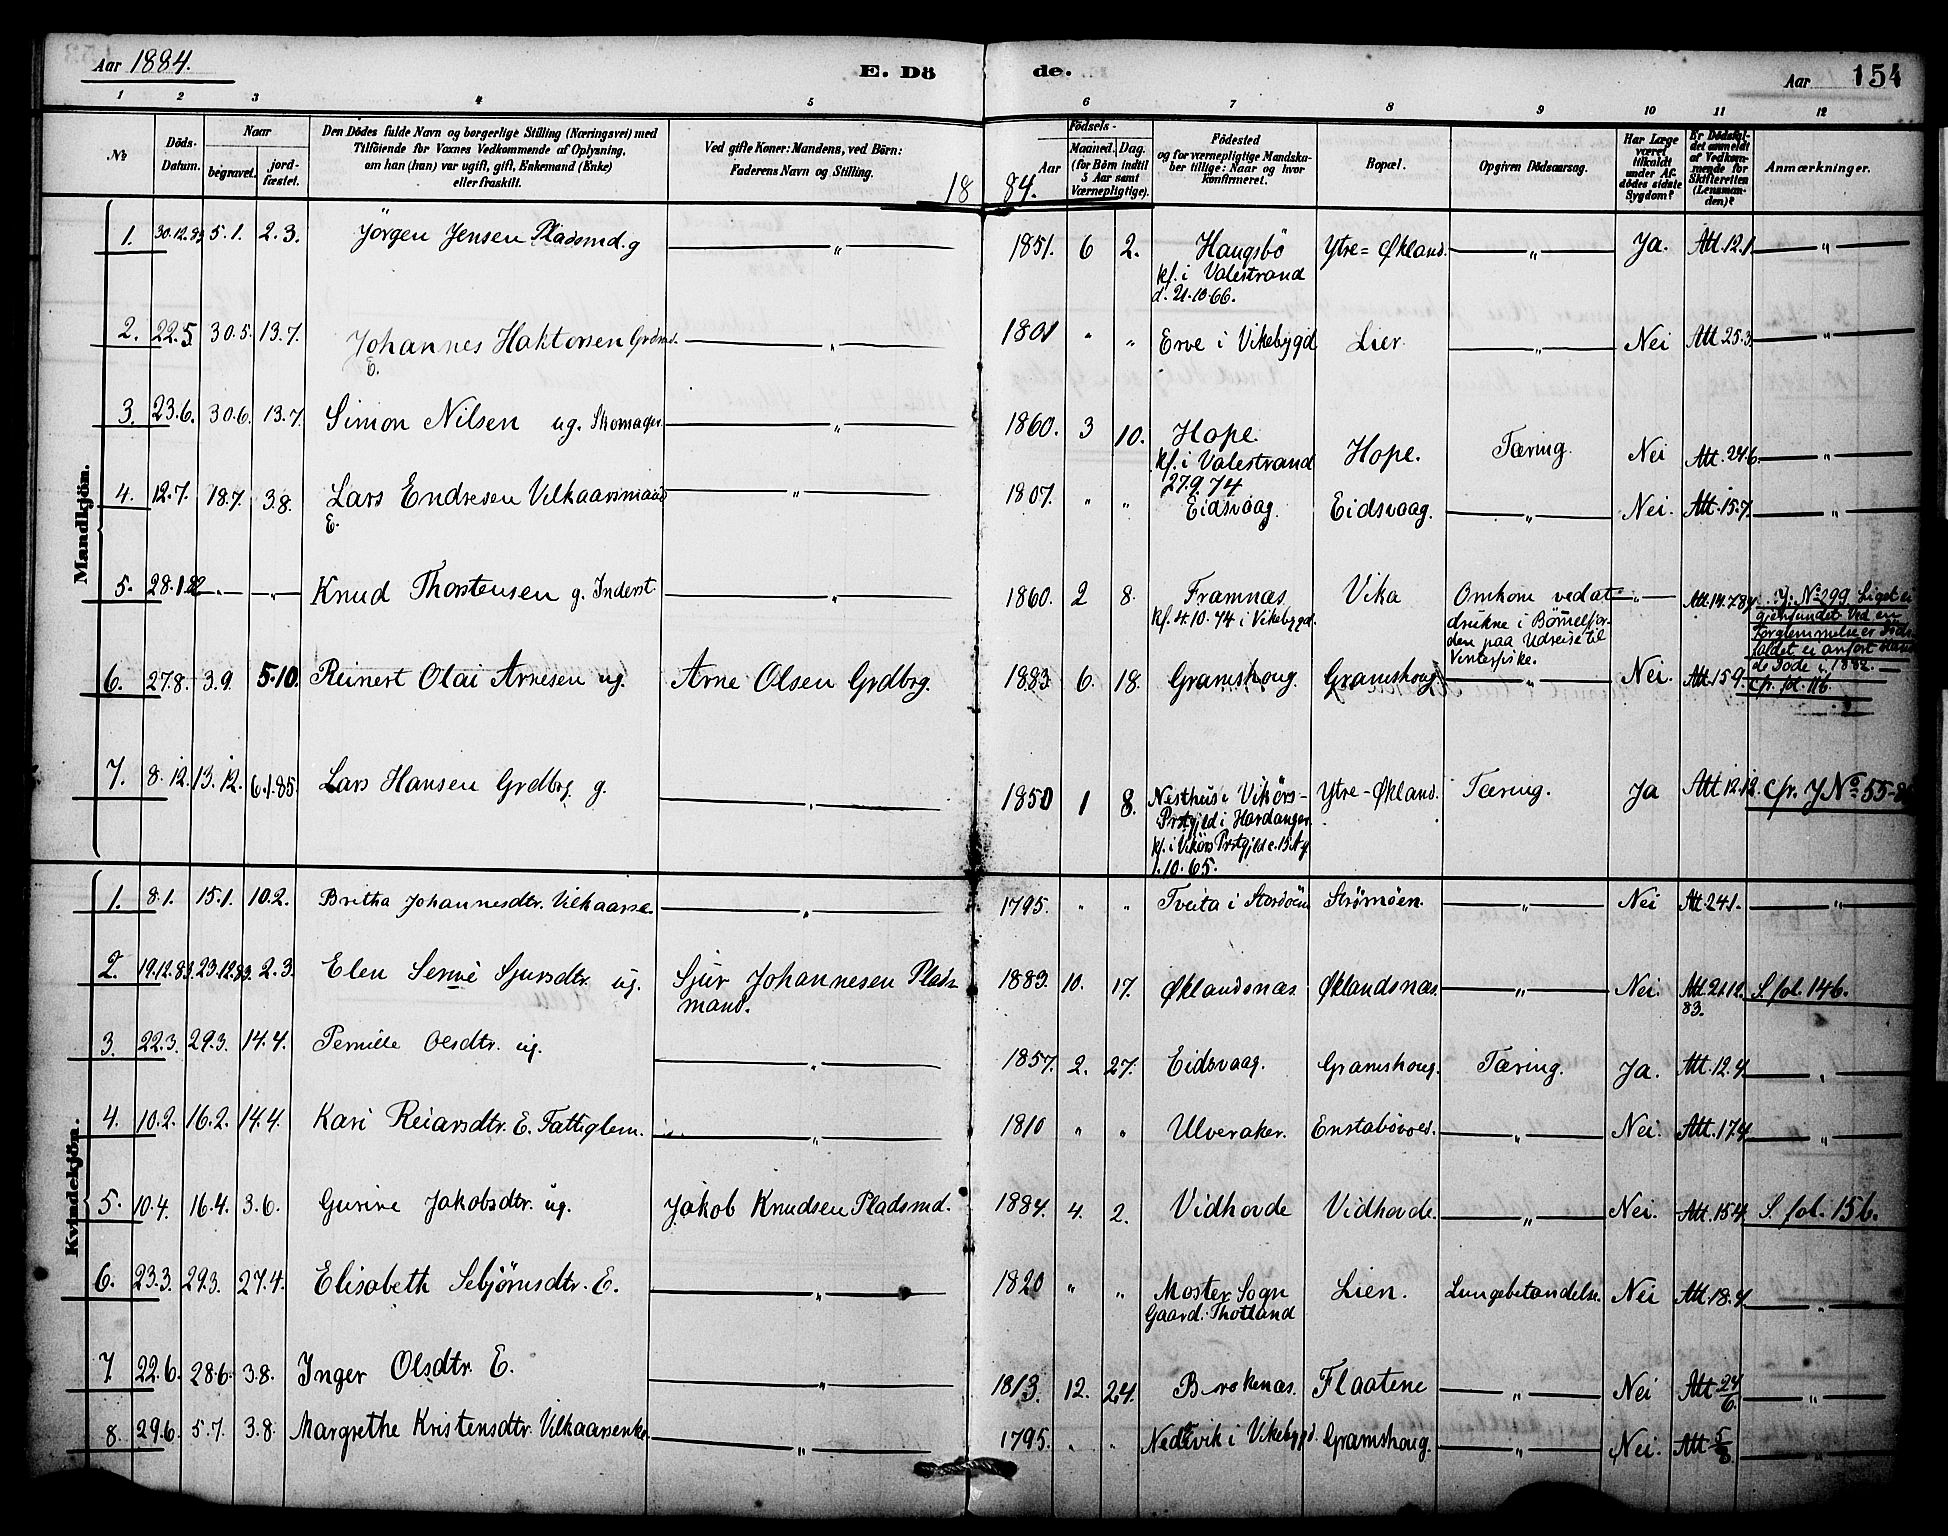 Aar 1884.
E. Dö de.
Aar 154
1 2 3 4 5 6 7 8 9 10 11 12
№
Döds-Datum.
Naar
begravet.
jordfæstet.
Den Dödes fulde Navn og borgerlige Stilling (Næringsvei) med
Tilföiende for Voxnes Vedkommende af Oplysning,
om han (hun) var ugift, gift, Enkemand (Enke)
eller fraskilt.
Ved gifte Koner: Mandens, ved Börn:
Faderens Navn og Stilling.
Födsels-
Aar
Maaned. Dag.
(for Börn indtil
5 Aar samt
Værnepligtige).
Födested
og for værnepligtige Mandska-
ber tillige: Naar og hvor
konfirmeret.
Bopæl.
Opgiven Dödsaarsag.
Har Læge
været
tilkaldt
under Af-
dödes sidste
Sygdom?
Er Dödsfal-
det anmeldt
af Vedkom-
mende for
Skifteretten
(Lensman-
den)?
Anmærkninger.
1884.
Mandkjön.
1. 30.12.83 5.1. 2.3. Jörgen Jensen Pladsmd. g — „ — 1851. 6 2. Haugsbö Ytre=Økland. — „ — Ja. Att. 12.1 — „ —
kf. i Valestrand
d. 21.10.66.
2. 22.5. 30.5. 13.7. Johannes Haktorsen Grdmd. — „ — 1801 „ „ Erve i Vikebygd Lier. — „ — Nei Att. 25.3. — „ —
E.
3. 23.6. 30.6. 13.7. Simon Nilsen ug. Skomager. — „ — 1860. 3 10. Hope. Hope. Tæring. Nei Att. 24.6. — „ —
kf. i Valestrand
27.9.74
4. 12.7. 18.7. 3.8. Lars Endresen Vilkaarsmand — „ — 1807. „ „ Eidsvaag. Eidsvaag. — „ — Nei. Att. 15.7. — „ —
E.
5. 28.1.82 — „ — — „ — Knud Thorstensen g. Inderst. — „ — 1860. 2 8. Framnæs Vika Omkom ved at — „ — Att. 14.7.84 J. No 299 Liget ei
kf. 4.10.74 i Vikebygd. drukne i Bømmelfjor- gjenfundet. Ved en
den paa Udreise til Forglemmelse er Døds-
Vinterfiske. faldet ei anført blandt
de Døde i 1882.
cfr. fol. 116.
6. 27.8. 3.9. 5.10. Reinert Olai Arnesen ug. Arne Olsen Grdbrg. 1883. 6. 18. Gramshoug. Gramshoug. — „ — Nei. Att. 15.9.
7. 8.12. 13.12. 6.1.85. Lars Hansen Grdbrg. g. — „ — 1850 1 8. Nesthus i Vikörs- Ytre-Økland. Tæring. Ja Att 12.12. cfr. J No 55-
Prstgjld i Hardanger.
kf. i Vikörs Prstgjld
1.10.65.
Kvindekjön.
1. 8.1. 15.1. 10.2. Britha Johannesdtr. — „ — 1795. „ „ Tveita i Stordöen Strømøen. — „ — Nei Att 24.1. — „ —
2. 19.12.83. 23.12.83. 2.3. Elen Serine Sjursdtr. ug. Sjur Johannesen Plads- 1883. 10. 17. Øklandsnæs. Øklandsnæs. — „ — Nei. Att 21.12. S. fol. 146.
mand. 83.
3. 22.3. 29.3. 14.4. Pernille Olsdtr. ug. — „ — 1857. 2. 27. Eidsvaag. Gramshoug. Tæring. Ja. Att. 12.4. — „ —
4. 10.2. 16.2. 14.4. Kari Reiarsdtr. E. Fattiglem. — „ — 1810 „ „ Ulveraker. — „ — Nei. Att. 17.4 — „ —
5. 10.4. 16.4. 3.6. Gurine Jakobsdtr. ug. Jakob Knudsen Pladsmd. 1884. 4. 2. Vidhovde Vidhovde. — „ — Nei. Att. 15.4. S. fol. 156.
6. 23.3. 29.3. 27.4. Elisabeth Sebjörnsdtr. E. — „ — 1820 „ „ Moster Sogn Lien. Lungebetændelse. Nei Att. 18.4. — „ —
Gaard. Thotland
7. 22.6. 28.6. 3.8. Inger Olsdtr. E. — „ — 1813. 12. 24. Brokenæs. Flaatene — „ — Nei Att 24/6. — „ —
8. 29.6. 5.7. 3.8. Margrethe Kristensdtr. Vilkaarsenke. — „ — 1795. „ „ Nedrevik i Vikebygd. Gramshoug. — „ — Nei. Att — „ —